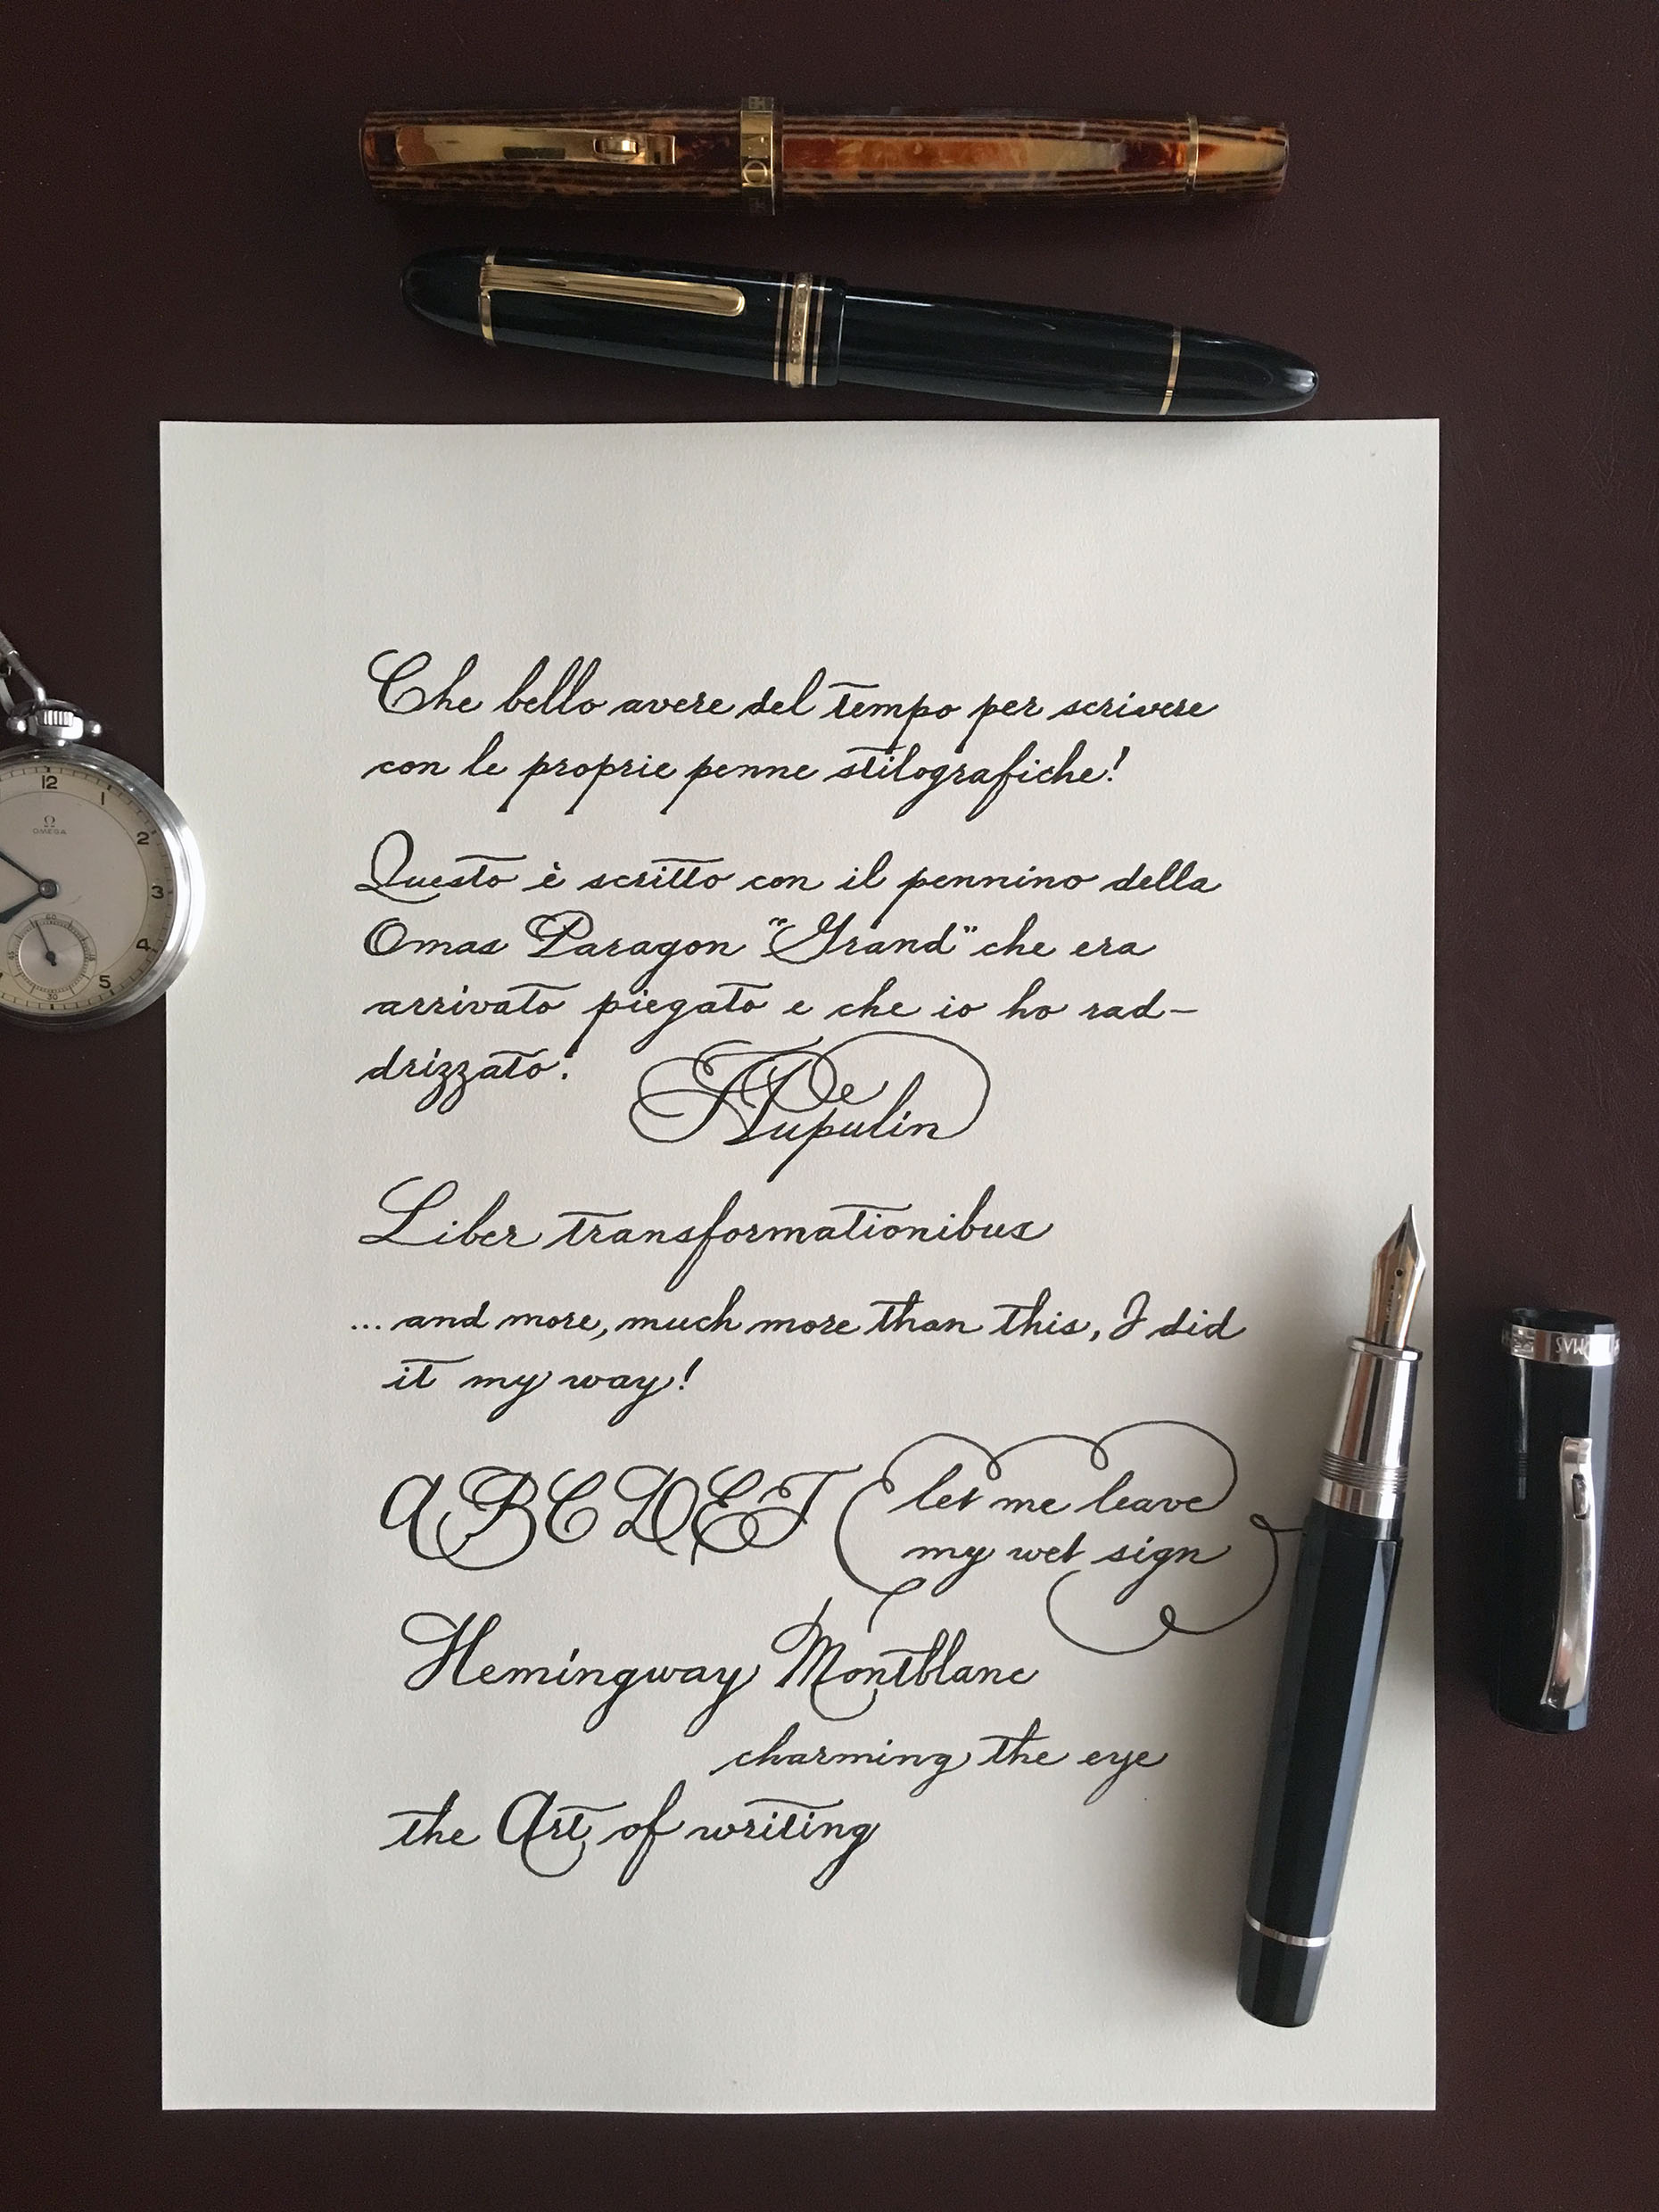 Che bello avere del tempo per scrivere
con le proprie penne stilografiche!
Questo è scritto con il pennino della
Omas Paragon "Grand" che era
arrivato piegato e che io ho rad-
drizzato!
Liber transformationibus
... and more, much more than this, I did
it my way!
ABCDEF
let me leave
my wet sign
Hemingway Montblanc
charming the eye
the Art of writing
Ω
OMEGA
12
1
2
3
4
5
60
30
OMAS